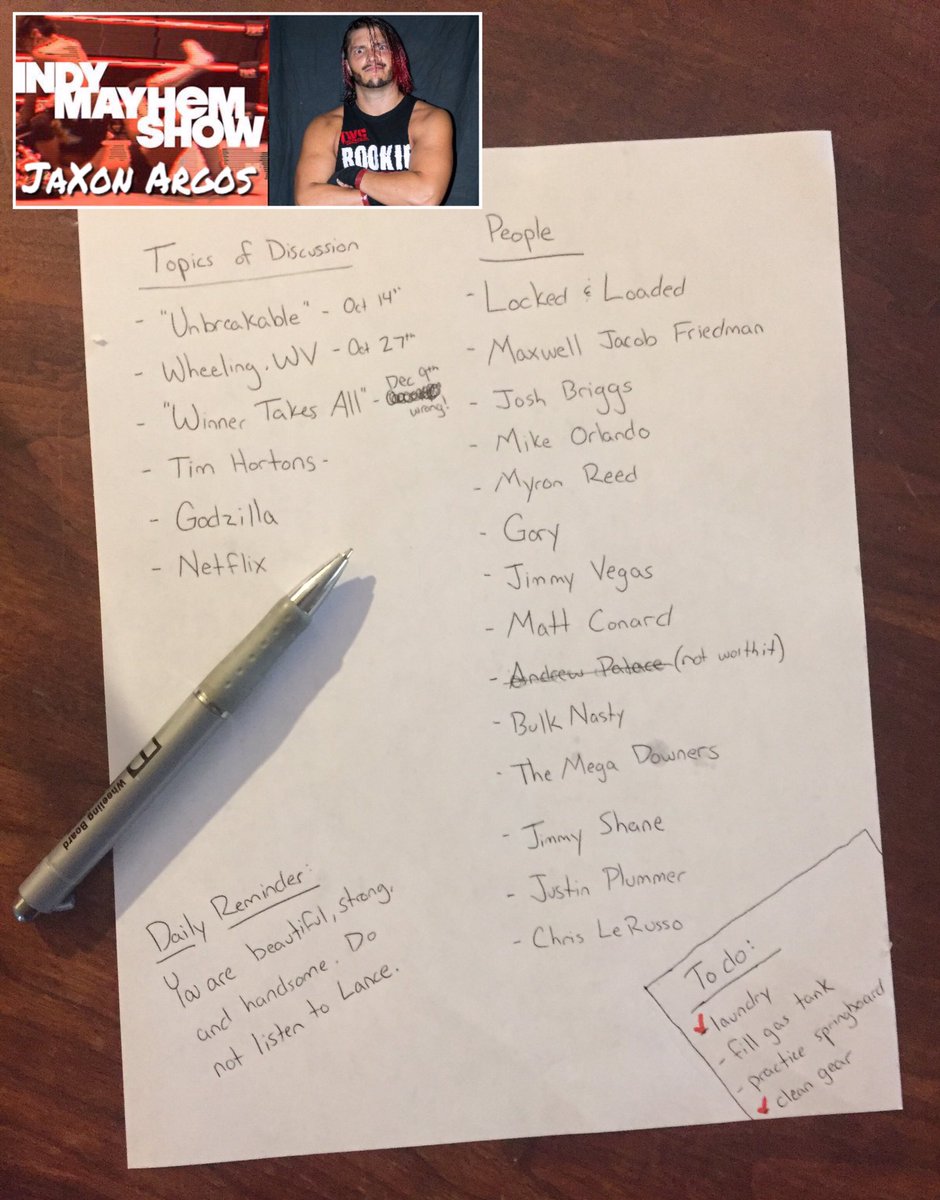 INDY
MAYHEM
SHOW
JaXon Argos
ROOKIE
Topics of Discussion
- "Unbreakable" - Oct 14th
- Wheeling, WV - Oct 27th
- "Winner Takes All" - Dec 9th
wrong!
- Tim Hortons-
- Godzilla
- Netflix
People
- Locked & Loaded
- Maxwell Jacob Friedman
- Josh Briggs
- Mike Orlando
- Myron Reed
- Gory
- Jimmy Vegas
- Matt Conard
- Andrew Palace (not worth it)
- Bulk Nasty
- The Mega Downers
- Jimmy Shane
- Justin Plummer
- Chris LeRusso
Wheeling Board
Daily Reminder:
You are beautiful, strong,
and handsome. Do
not listen to Lance.
To do:
laundry
- fill gas tank
- practice springboard
clean gear